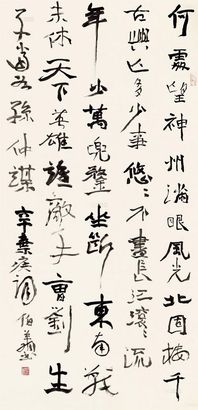 何處望神州滿眼風光北固樓千
古興亡多少事悠悠不盡長江滾滾流
年少萬兜鍪坐斷東南戰
未休天下英雄誰敵手曹劉生
子當如孫仲謀 辛棄疾詞 伯